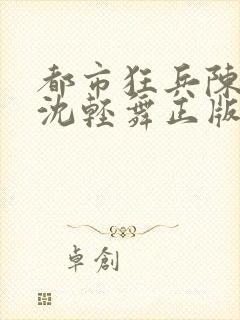 都市狂兵陳
沈輕舞正版
卓創